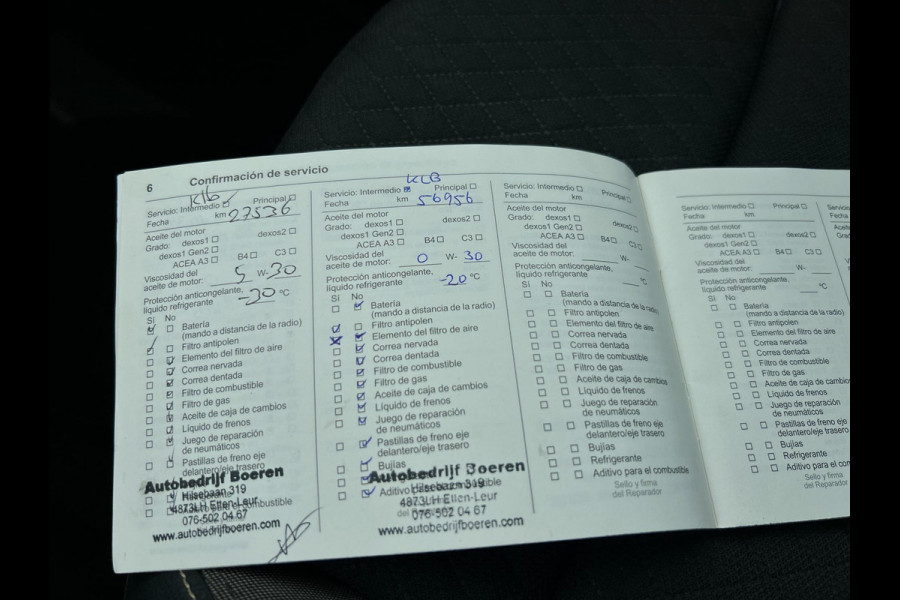 6 Confirmación de servicio
Klb
Servicio: Intermedio Principal
Fecha km 27536
Aceite del motor
Grado: dexos1 dexos2
dexos1 Gen2
ACEA A3 B4 C3
Viscosidad del
aceite de motor: 5 W-30
Protección anticongelante,
líquido refrigerante -30 °C
Sí No
Batería
(mando a distancia de la radio)
Filtro antipolen
Elemento del filtro de aire
Correa nervada
Correa dentada
Filtro de combustible
Filtro de gas
Aceite de caja de cambios
Líquido de frenos
Juego de reparación
de neumáticos
Pastillas de freno eje
delantero/eje trasero
Autobedrijf Boeren
Hilsebaan 319
4873LH Etten-Leur
076-502 04 67
www.autobedrijfboeren.com
KLB
Servicio: Intermedio Principal
Fecha km 56956
Aceite del motor
Grado: dexos1 dexos2
dexos1 Gen2
ACEA A3 B4 C3
Viscosidad del
aceite de motor: 0 W- 30
Protección anticongelante,
líquido refrigerante -20 °C
Sí No
Batería
(mando a distancia de la radio)
Filtro antipolen
Elemento del filtro de aire
Correa nervada
Correa dentada
Filtro de combustible
Filtro de gas
Aceite de caja de cambios
Líquido de frenos
Juego de reparación
de neumáticos
Pastillas de freno eje
delantero/eje trasero
Bujías
Autobedrijf Boeren
Aditivo
Hilsebaan 319
4873LH Etten-Leur
076-502 04 67
www.autobedrijfboeren.com
Servicio: Intermedio Principal
Fecha km
Aceite del motor
Grado: dexos1 dexos2
dexos1 Gen2
ACEA A3 B4 C3
Viscosidad del
aceite de motor: W-
Protección anticongelante,
líquido refrigerante °C
Sí No
Batería
(mando a distancia de la radio)
Filtro antipolen
Elemento del filtro de aire
Correa nervada
Correa dentada
Filtro de combustible
Filtro de gas
Aceite de caja de cambios
Líquido de frenos
Juego de reparación
de neumáticos
Pastillas de freno eje
delantero/eje trasero
Bujías
Refrigerante
Aditivo para el combustible
Sello y firma
del Reparador
Servicio: Intermedio Principal
Fecha km
Aceite del motor
Grado: dexos1 dexos2
dexos1 Gen2
ACEA A3 B4 C3
Viscosidad del
aceite de motor: W-
Protección anticongelante,
líquido refrigerante °C
Sí No
Batería
(mando a distancia de la radio)
Filtro antipolen
Elemento del filtro de aire
Correa nervada
Correa dentada
Filtro de combustible
Filtro de gas
Aceite de caja de cambios
Líquido de frenos
Juego de reparación
de neumáticos
Pastillas de freno eje
delantero/eje trasero
Bujías
Refrigerante
Aditivo para el com
Sello y firma
del Reparador